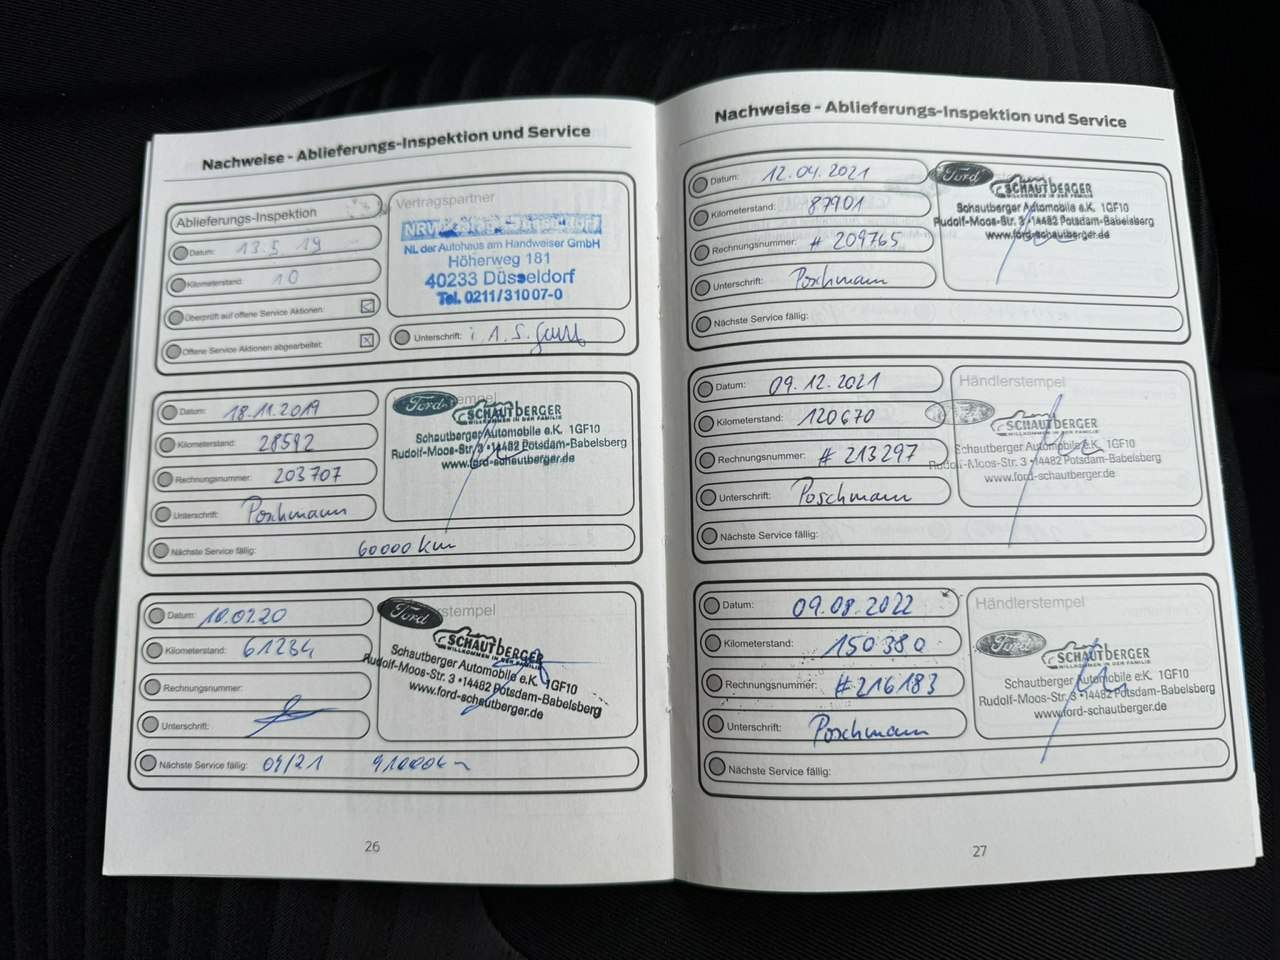 Nachweise - Ablieferungs-Inspektion und Service
Ablieferungs-Inspektion
Datum: 13.5.19
Kilometerstand: 10
Überprüft auf offene Service Aktionen:
Offene Service Aktionen abgearbeitet:
Vertragspartner
NRW
NL der Autohaus am Handweiser GmbH
Höherweg 181
40233 Düsseldorf
Tel. 0211/31007-0
Unterschrift:
Datum: 18.11.2019
Kilometerstand: 28592
Rechnungsnummer: 203707
Unterschrift: Poschmann
Nächste Service fällig: 60000 km
Ford
SCHAUTBERGER
WILLKOMMEN IN DER FAMILIE
Schautberger Automobile e.K. 1GF10
Rudolf-Moos-Str. 3 • 14482 Potsdam-Babelsberg
www.ford-schautberger.de
Datum:
Kilometerstand: 61284
Rechnungsnummer:
Unterschrift:
Nächste Service fällig: 04/21 91000 km
Ford
SCHAUTBERGER
WILLKOMMEN IN DER FAMILIE
Schautberger Automobile e.K. 1GF10
Rudolf-Moos-Str. 3 • 14482 Potsdam-Babelsberg
www.ford-schautberger.de
26
Nachweise - Ablieferungs-Inspektion und Service
Datum: 12.04.2021
Kilometerstand: 87901
Rechnungsnummer: # 209765
Unterschrift: Poschmann
Nächste Service fällig:
Ford
SCHAUTBERGER
Schautberger Automobile e.K. 1GF10
Rudolf-Moos-Str. 3 • 14482 Potsdam-Babelsberg
www.ford-schautberger.de
Datum: 09.12.2021
Kilometerstand: 120670
Rechnungsnummer: # 213297
Unterschrift: Poschmann
Nächste Service fällig:
Händlerstempel
Ford
SCHAUTBERGER
WILLKOMMEN IN DER FAMILIE
Schautberger Automobile e.K. 1GF10
Rudolf-Moos-Str. 3 • 14482 Potsdam-Babelsberg
www.ford-schautberger.de
Datum: 09.08.2022
Kilometerstand: 150380
Rechnungsnummer: #216183
Unterschrift: Poschmann
Nächste Service fällig:
Händlerstempel
Ford
SCHAUTBERGER
WILLKOMMEN IN DER FAMILIE
Schautberger Automobile e.K. 1GF10
Rudolf-Moos-Str. 3 • 14482 Potsdam-Babelsberg
www.ford-schautberger.de
27